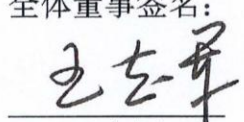 全体董事签名：
王志军